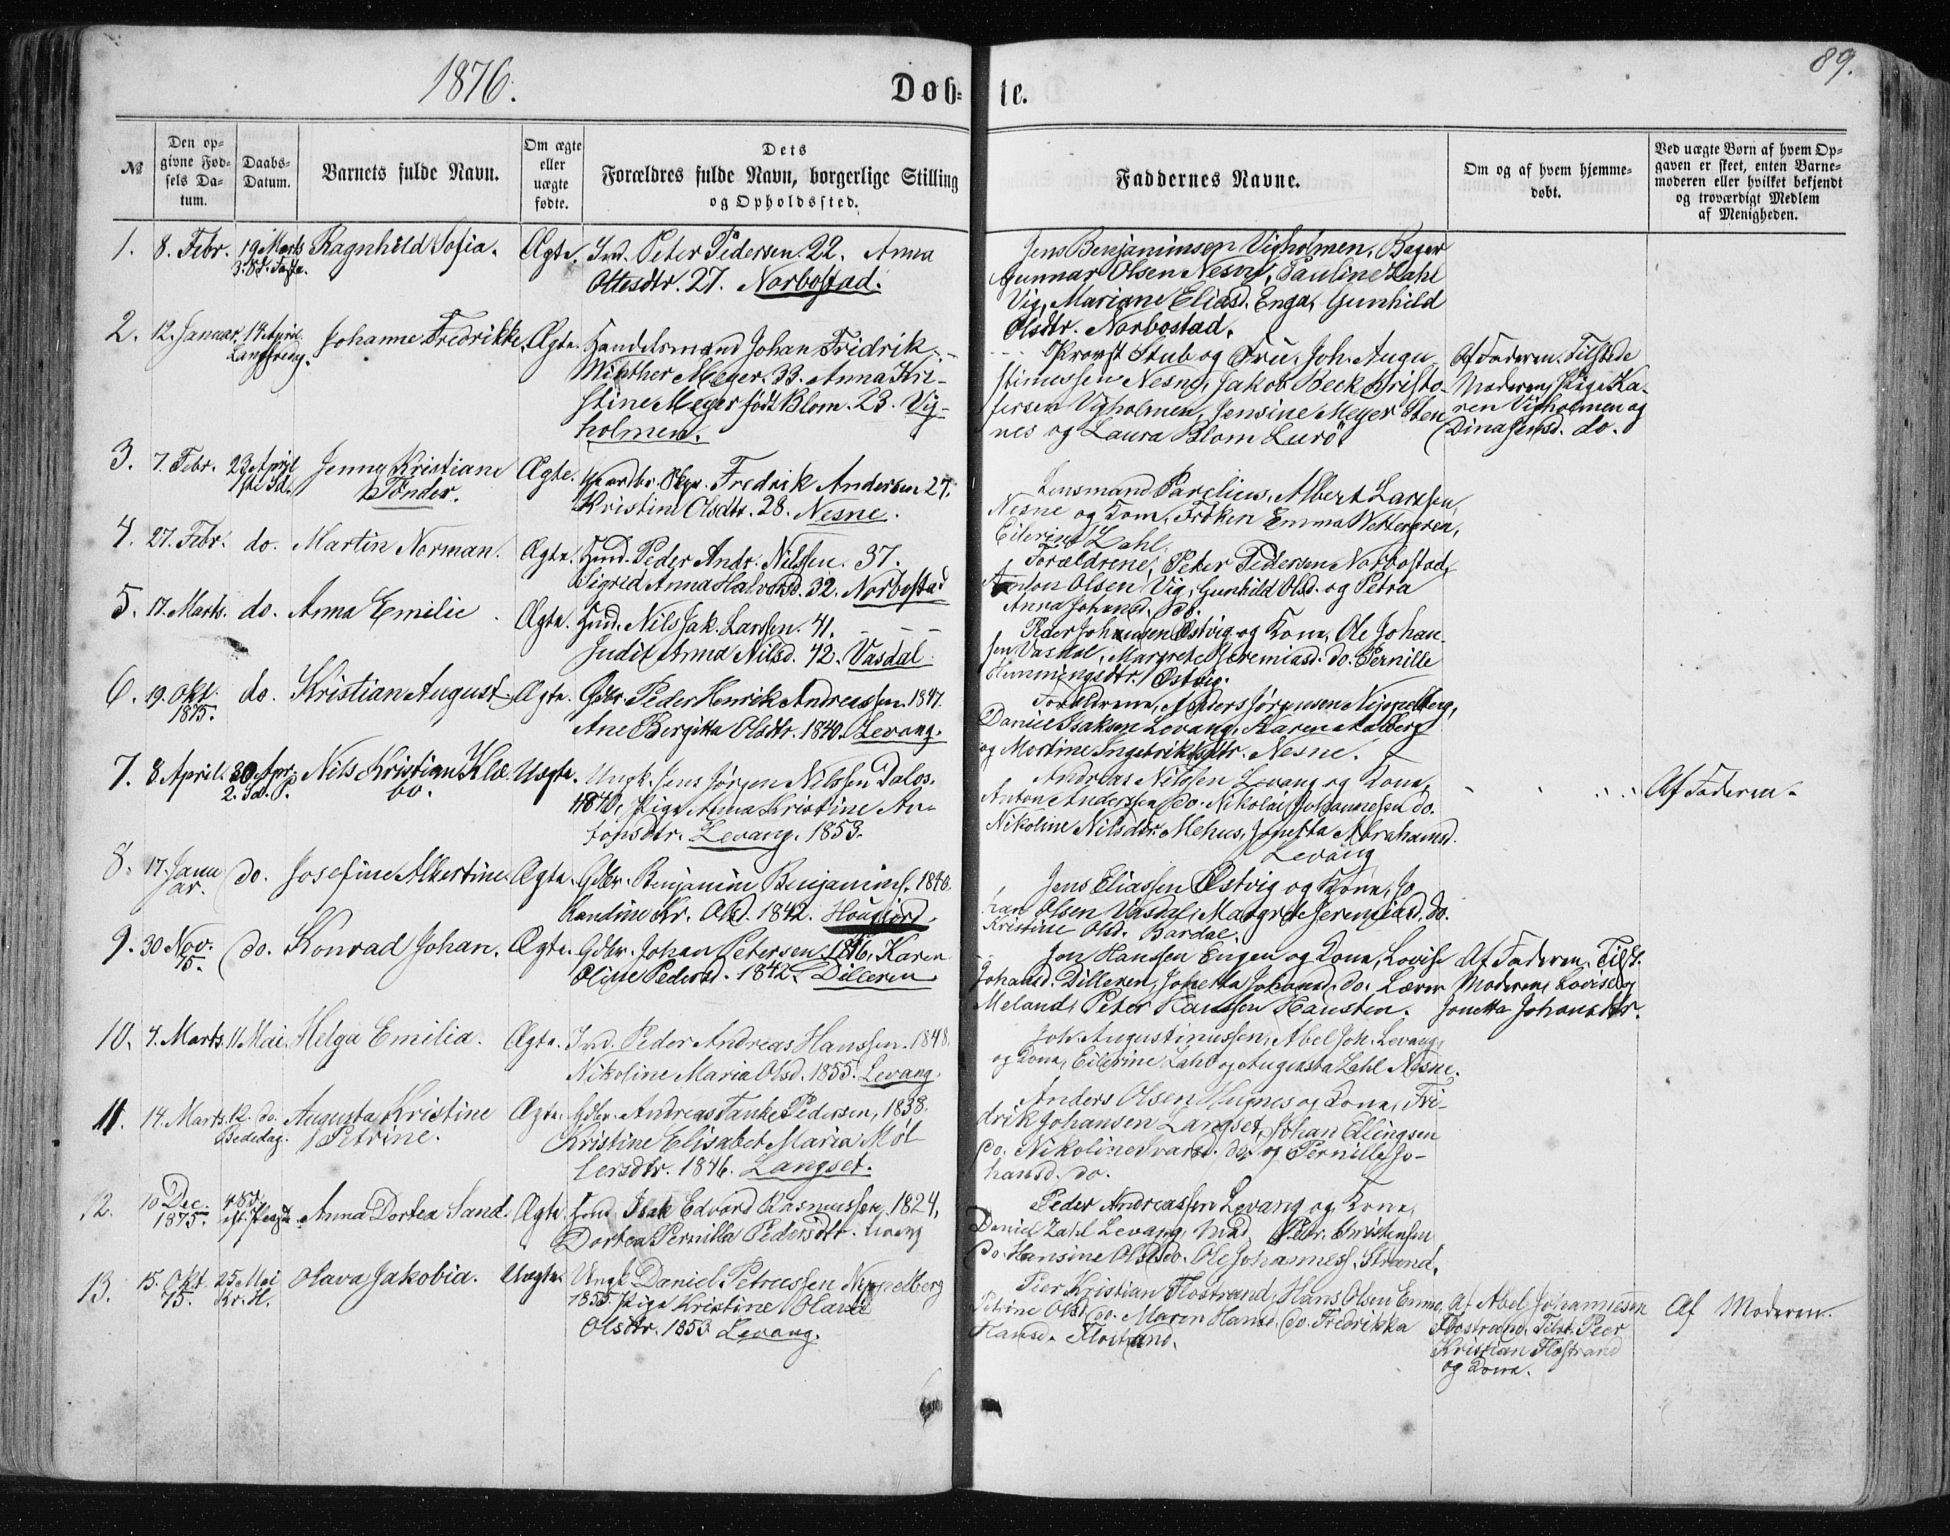 1876.
Døb-
te.
89.
№
Den op-
givne Fød-
sels Da-
tum.
Daabs-
Datum.
Barnets fulde Navn.
Om ægte
eller
uægte
fødte.
Dets
Forældres fulde Navn, borgerlige Stilling
og Opholdssted.
Faddernes Navne.
Om og af hvem hjemme-
døbt.
Ved uægte Børn af hvem Op-
gaven er skeet, enten Barne-
moderen eller hvilket bekjendt
og troværdigt Medlem
af Menigheden.
1. 8. Febr. 19 Marts Ragnhild Sofia. Ægte. Ind. Peter Pedersen. 22. Anna
3. S. i Faste.
Ottesdtr. 27. Norbostad.
Jens Benjaminsen Vigholmen, Bager
Gunnar Olsen Nesne, Pauline Zahl
Vig, Mariane Eliasd. Enga, Gunhild
Olsdtr. Norbostad.
2. 12. Januar. 14 April Johanne Fredrikke. Ægte. Handelsmand Johan Fridrik
Langfredag.
Winther Meyer. 33. Anna Kri-
stine Meyer født Blom. 23. Vig-
holmen.
Provst Stub og Frue, Joh. Augu
stinussen Nesne, Jakob Beck Kristo-
fersen Vigholmen, Jensine Meyer Sten
nes og Laura Blom Lurö.
Af Faderen. Tilstede
Moderen, Pige Ka-
ren Vigholmen og
Dina Jensd. do.
3. 7. Febr. 23 April Jenny Kristiane Ægte. Fredrik Andersen 27.
1ste S.
Tønder.
Kristine Olsdtr. 28. Nesne.
Lensmand Parelius, Albert Larssen,
Nesne og Kone, Frøken Emma Wettergren,
Eilerine Zahl.
4. 27. Febr. do. Martin Norman. Ægte. Huud. Peder Andr. Nilssen. 37.
Sigrid Anna Halvorsd. 32. Norbostad
Forældrene, Peter Pedersen Norbostad,
Anton Olsen Vig, Gunhild Olsd. og Petra
Anna Johansd. do.
5. 17. Marts. do. Anna Emilie. Ægte. Huud. Nils Jak. Larssen. 41.
Judit Anna Nilsd. 42. Vasdal.
Peder Johansen Østvig og Kone, Ole Johan-
sen Vasdal, Margrete Jeremiasd. do. Pernille
Hemmingsdtr. Østvig.
6. 19. Okt. do. Kristian August. Ægte. Gdbr. Peder Henrik Andreassen. 1847.
1875.
Ane Bergitta Olsdtr. 1840. Levang.
Forældrene, Anders Jörgensen Nippelberg,
Daniel Isaksen Levang, Karen Aalberg
og Martine Ingebrigtsdtr. Nesne.
7. 8 April. 30 Apr. Nils Kristian Klæ- Uægte. Ungk. Jens Jørgen Nilssen Dalos.
2. Sø. P.
bo.
1840, Pige Anna Kristine An-
tonsdtr. Levang. 1853.
Andreas Nilssen Levang og Kone,
Anton Andersen do. Nikolai Johannesen do.
Nikoline Nilsdtr. Mehus, Jonetta Abrahamsd.
Levang
Af Faderen.
8. 17. Janu do. Josefine Albertine. Ægte. Gdbr. Benjamin Benjamins. 1840.
ar.
Randine Kr. Olsd. 1842. Hougjord.
Jens Eliassen Østvig og Kone, Jo
han Olsen Vasdal, Margrete Jeremiasd. do.
Kristine Olsd. Bardal.
9. 30 Nov. do. Konrad Johan. Ægte. Gdbr. Johan Petersen. 1846, Karen
75.
Oline Pedersd. 1842. Dilleren.
Jon Hanssen Engen og Kone, Lovise
Johansd. Dilleren, Jonetta Johansd. do. Lærer
Meland, Peter Hanssen Hausten.
Af Faderen. Tilst.
Moderen, Lovise og
Jonetta Johansdtr.
10. 4. Marts. 11 Mai. Helga Emilia. Ægte. Ind. Peder Andreas Hanssen. 1848.
Nikoline Maria Olsd. 1855. Levang.
Joh. Augustinussen, Abel Joh. Levang,
og Kone, Eilerine Zahl og Augusta Zahl Nesne.
11. 14. Marts. 12. do. Augusta Kristine Ægte. Gdbr. Andreas Tanke Pedersen, 1838.
Bededag.
Petrine.
Kristine Elisabet Maria Møl
lersdtr. 1846. Langset.
Anders Olsen Hugnes og Kone, Fri-
drik Johansen Langset, Johan Ellingsen
do. Nikoline Ivarsd. do. og Pernille Jo-
hansd. do.
12. 10 Dec. 4 S.
1875. eft. Paaske
Anna Dortea Sand. Ægte. Huud. Isak Edvard Rasmussen, 1824,
Dortea Pernilla Pedersdtr. Levang
Peder Andreassen Levang og Kone,
Daniel Zahl Levang, Mad. Petr. Kristensen
do. Hansine Olsd. do. Ole Johanness. Strand.
13. 15. Okt. 25 Mai Olava Jakobia. Uægte. Ungk. Daniel Petrussen Nippelberg
75. Kr. H.
1855. Pige Kristine Olava
Olsdtr. 1853 Levang.
Peer Kristian Flostrand, Hans Olsen Enne,
Petrine Olsd. do. Maren Hansd. do. Fredrikka
Hansd. Flostrand.
Af Abel Johannesen
Flostrand. Tilst. Peer
Kristian Flostrand
og Kone.
Af Moderen.